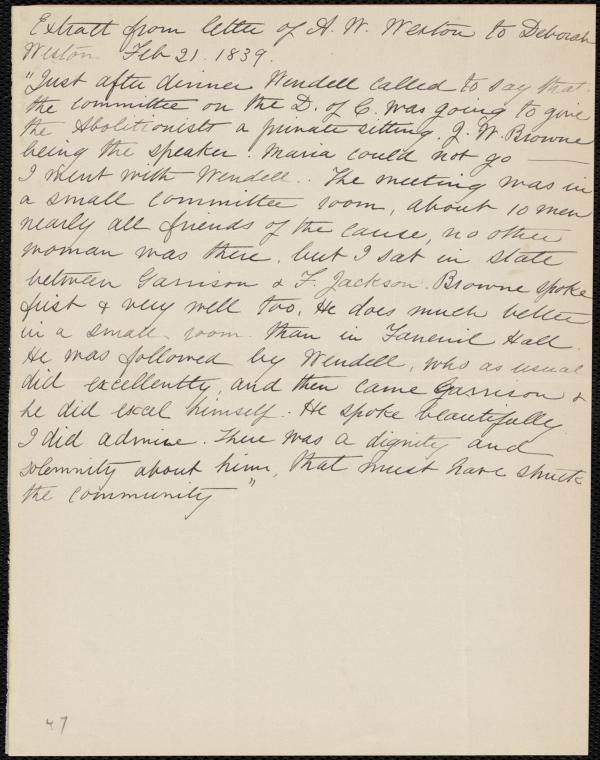 Extract from letter of A. W. Weston to Deborah
Weston Feb 21. 1839.
"Just after dinner Wendell called to say that
the committee on the D. of C. was going to give
the Abolitionists a private sitting. J. W. Browne
being the speaker. Maria could not go —
I went with Wendell. The meeting was in
a small committee room, about 10 men
nearly all friends of the cause, no other
woman was there, but I sat in state
between Garrison & F. Jackson. Browne spoke
first & very well too. He does much better
in a small room than in Faneuil Hall.
He was followed by Wendell, who as usual
did excellently, and then came Garrison &
he did excel himself. He spoke beautifully
I did admire. There was a dignity and
solemnity about him, that must have struck
the community"
47